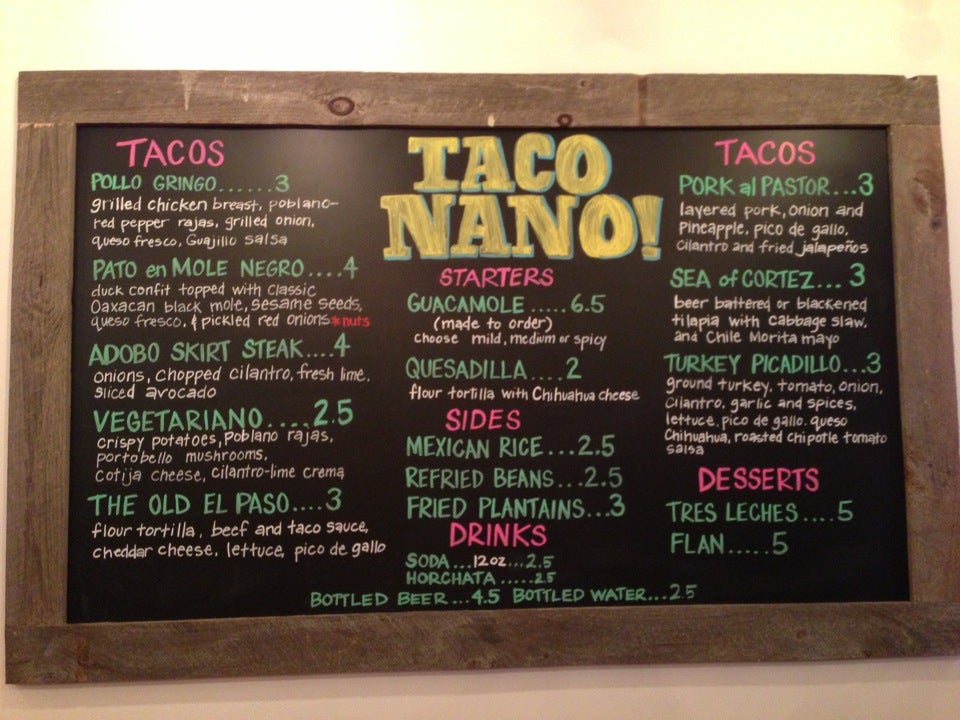 TACOS
POLLO GRINGO......3
grilled chicken breast, poblano-
red pepper rajas, grilled onion,
queso fresco, Guajillo salsa
PATO en MOLE NEGRO....4
duck confit topped with classic
Oaxacan black mole, sesame seeds,
queso fresco, & pickled red onions *nuts
ADOBO SKIRT STEAK....4
onions, chopped cilantro, fresh lime,
sliced avocado
VEGETARIANO....2.5
crispy potatoes, Poblano rajas,
portobello mushrooms,
cotija cheese, cilantro-lime crema
THE OLD EL PASO....3
flour tortilla, beef and taco sauce,
cheddar cheese, lettuce, pico de gallo
TACO
NANO!
STARTERS
GUACAMOLE.....6.5
(made to order)
choose mild, medium or spicy
QUESADILLA....2
flour tortilla with Chihuahua cheese
SIDES
MEXICAN RICE...2.5
REFRIED BEANS...2.5
FRIED PLANTAINS...3
DRINKS
SODA...12oz...2.5
HORCHATA.....2.5
BOTTLED BEER...4.5 BOTTLED WATER...2.5
TACOS
PORK al PASTOR...3
layered pork, onion and
Pineapple, pico de gallo,
cilantro and fried jalapeños
SEA of CORTEZ...3
beer battered or blackened
tilapia with cabbage slaw,
and Chile Morita mayo
TURKEY PICADILLO...3
ground turkey, tomato, onion,
Cilantro, garlic and spices,
lettuce, pico de gallo. queso
Chihuahua, roasted chipotle tomato
salsa
DESSERTS
TRES LECHES....5
FLAN.....5